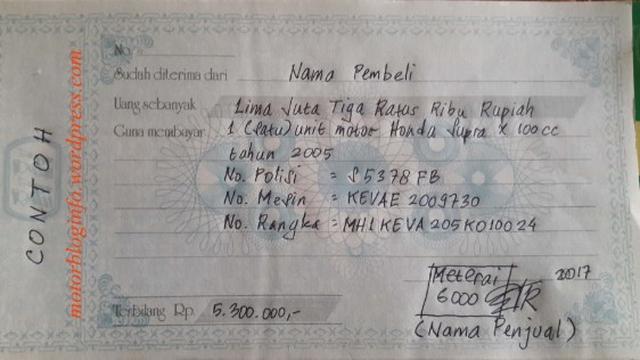 No.
Sudah diterima dari Nama Pembeli
Uang sebanyak Lima Juta Tiga Ratus Ribu Rupiah
Guna membayar 1 (Satu) unit motor Honda Supra X 100cc
tahun 2005
No. Polisi = S 5378 FB
No. Mesin = KEVAE 2009730
No. Rangka = MH1 KEVA 205 K010024
Meterai 2017
6000
Terbilang Rp. 5.300.000,-
(Nama Penjual)
CONTOH
motorbloginfo.wordpress.com